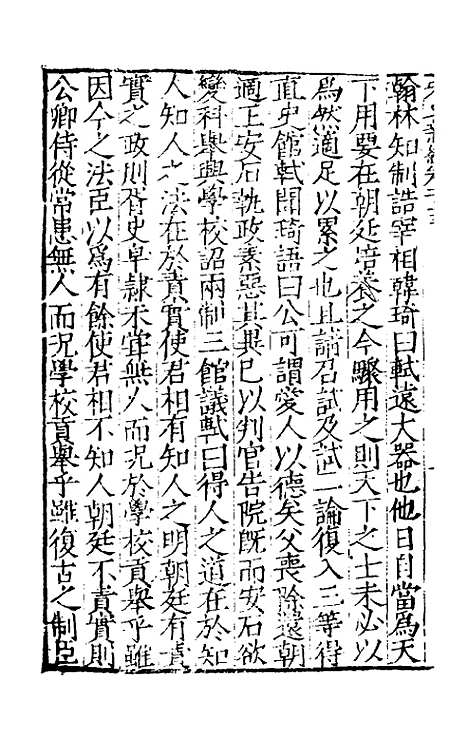 翰林知制誥宰相韓琦曰軾遠大器也他日自當爲天
下用要在朝廷培養之今驟用之則天下之士未必以
爲然適足以累之也且請召試及試二論復入三等得
直史館軾聞琦語曰公可謂愛人以德矣父喪除還朝
適王安石執政素惡其異已以判官告院旣而安石欲
變科舉興學校詔兩制三館議軾曰得人之道在於知
人知人之法在於責實使君相有知人之明朝廷有責
實之政則胥史皁隷未甞無人而况於學校貢舉乎雖
因今之法臣以爲有餘使君相不知人朝廷不責實則
公卿侍從常患無人而况學校貢舉乎雖復古之制臣